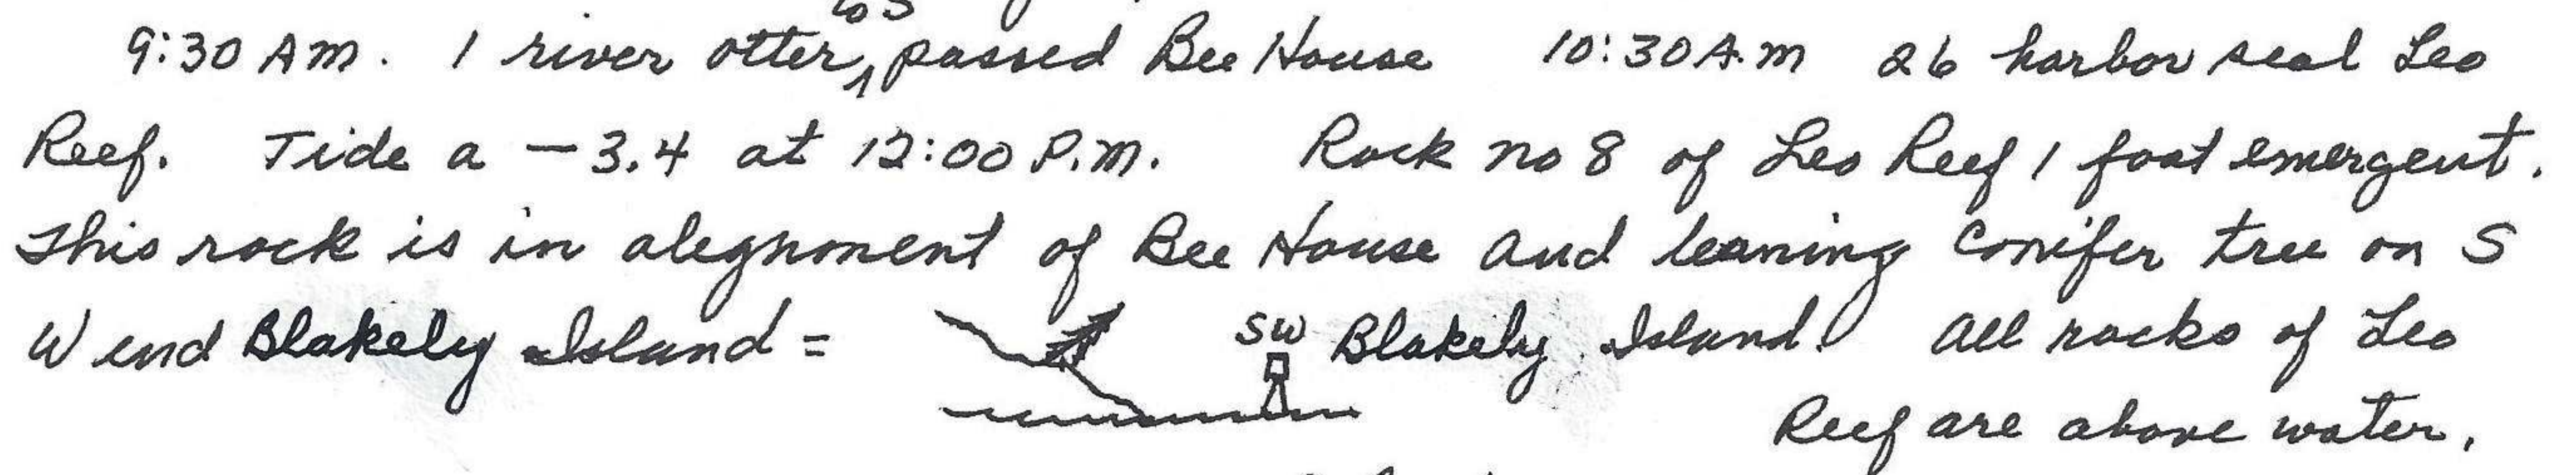 9:30 AM. 1 river otter to S passed Bee House 10:30 A.m 26 harbor seal Leo
Reef. Tide a -3.4 at 12:00 P.m. Rock no 8 of Leo Reef 1 foot emergent.
This rock is in alegnment of Bee House and leaning conifer tree on S
W end Blakely Island = SW Blakely Island. All rocks of Leo
Reef are above water.